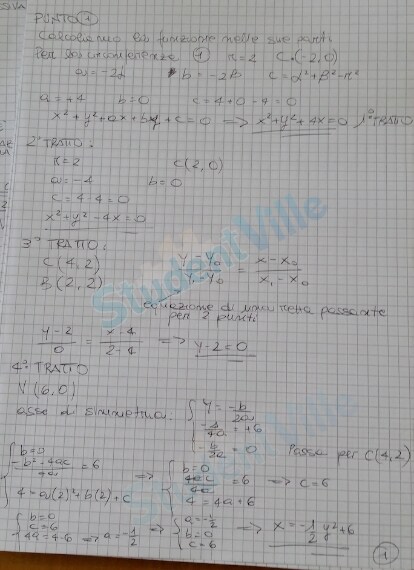 PUNTO 1
Calcoliamo la funzione nelle sue parti.
Per la circonferenza 1 r=2 C(-2,0)
a=-2α b=-2β c=α²+β²-r²
a=+4 b=0 c=4+0-4=0
x²+y²+ax+by+c=0 ⟹ x²+y²+4x=0 1° TRATTO
2° TRATTO:
r=2 C(2,0)
a=-4 b=0
c=4-4=0
x²+y²-4x=0
3° TRATTO:
C(4,2)
B(2,2)
y-y₀/y₁-y₀ = x-x₀/x₁-x₀
equazione di una retta passante
per 2 punti
y-2/0 = x-4/2-4 ⟹ y-2=0
4° TRATTO
V(6,0)
asse di simmetria
y=-b/2a
-Δ/4a=+6
-b/2a=0
Passa per C(4,2)
b=0
-b²+4ac/4a=6
4=a(2)²+b(2)+c
⟹
b=0
4ac/4a=6
4=4a+6
⟹ c=6
b=0
c=6
4a=4-6 ⟹ a=-1/2
⟹
a=-1/2
b=0
c=6
⟹ x=-1/2y²+6
1
StudentVille